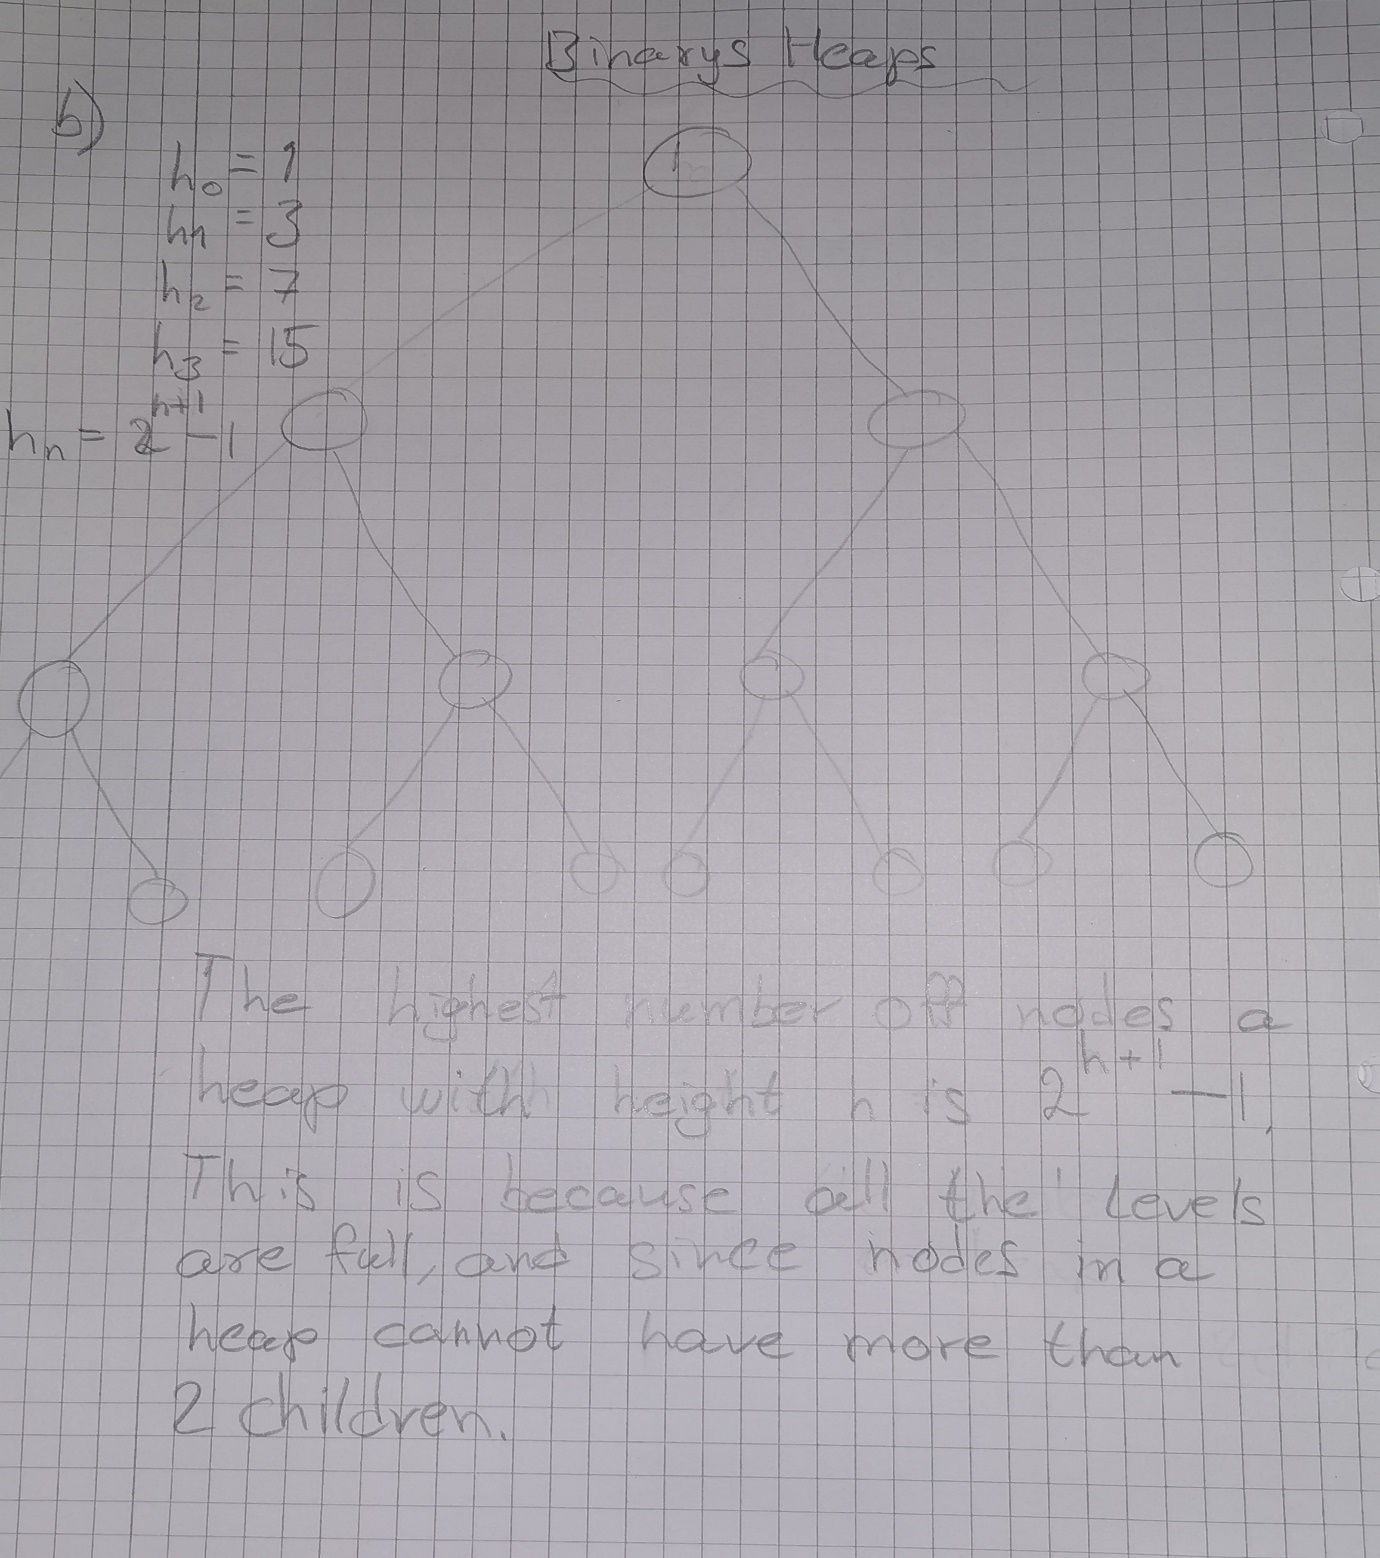 Binarys Heaps
b)
h₀ = 1
h₁ = 3
h₂ = 7
h₃ = 15
hₙ = 2ʰ⁺¹ - 1
The highest number off nodes a
heap with height h is 2ʰ⁺¹ - 1.
This is because all the levels
are full, and since nodes in a
heap cannot have more than
2 children.